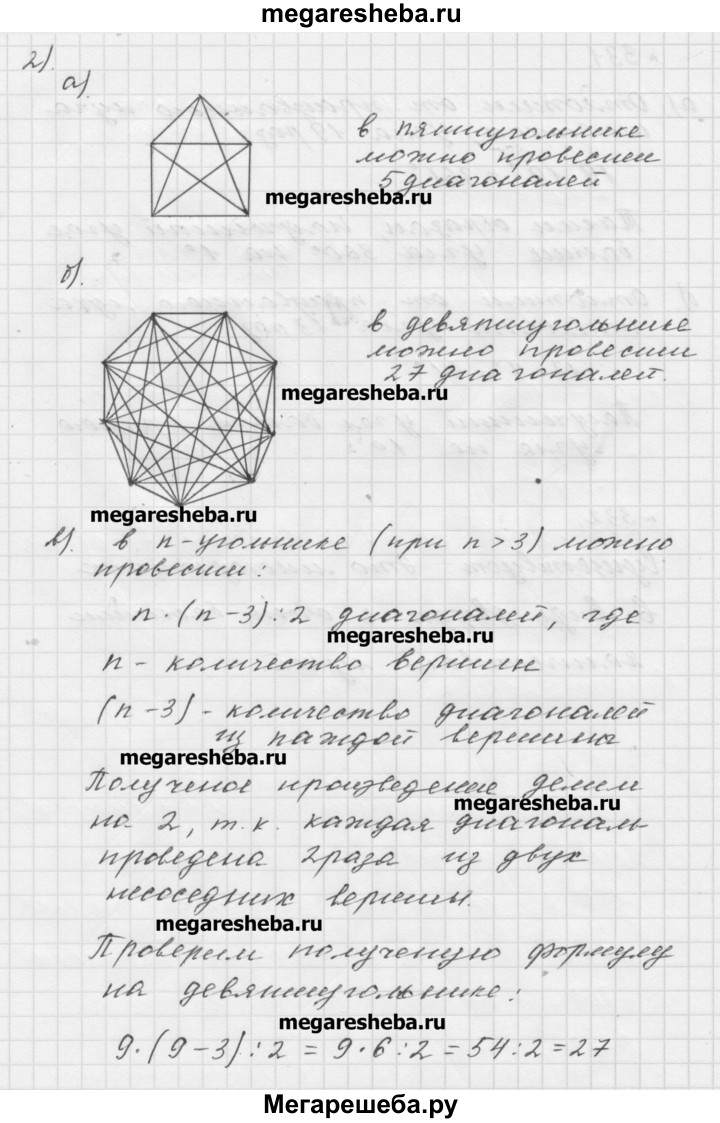 megaresheba.ru
2).
а).
в пятиугольнике
можно провести
5 диагоналей
megaresheba.ru
б).
в девятиугольнике
можно провести
27 диагоналей.
megaresheba.ru
megaresheba.ru
в). в n-угольнике (при n > 3) можно
провести:
n·(n-3):2 диагоналей, где
megaresheba.ru
n - количество вершин
(n-3) - количество диагоналей
из каждой вершины
megaresheba.ru
Полученое произведение делим
megaresheba.ru
на 2, т.к. каждая диагональ
проведена 2раза из двух
несоседних вершин.
megaresheba.ru
Проверим полученую формулу
на девятиугольнике:
megaresheba.ru
9·(9-3):2 = 9·6:2 = 54:2 = 27
Мегарешеба.ру